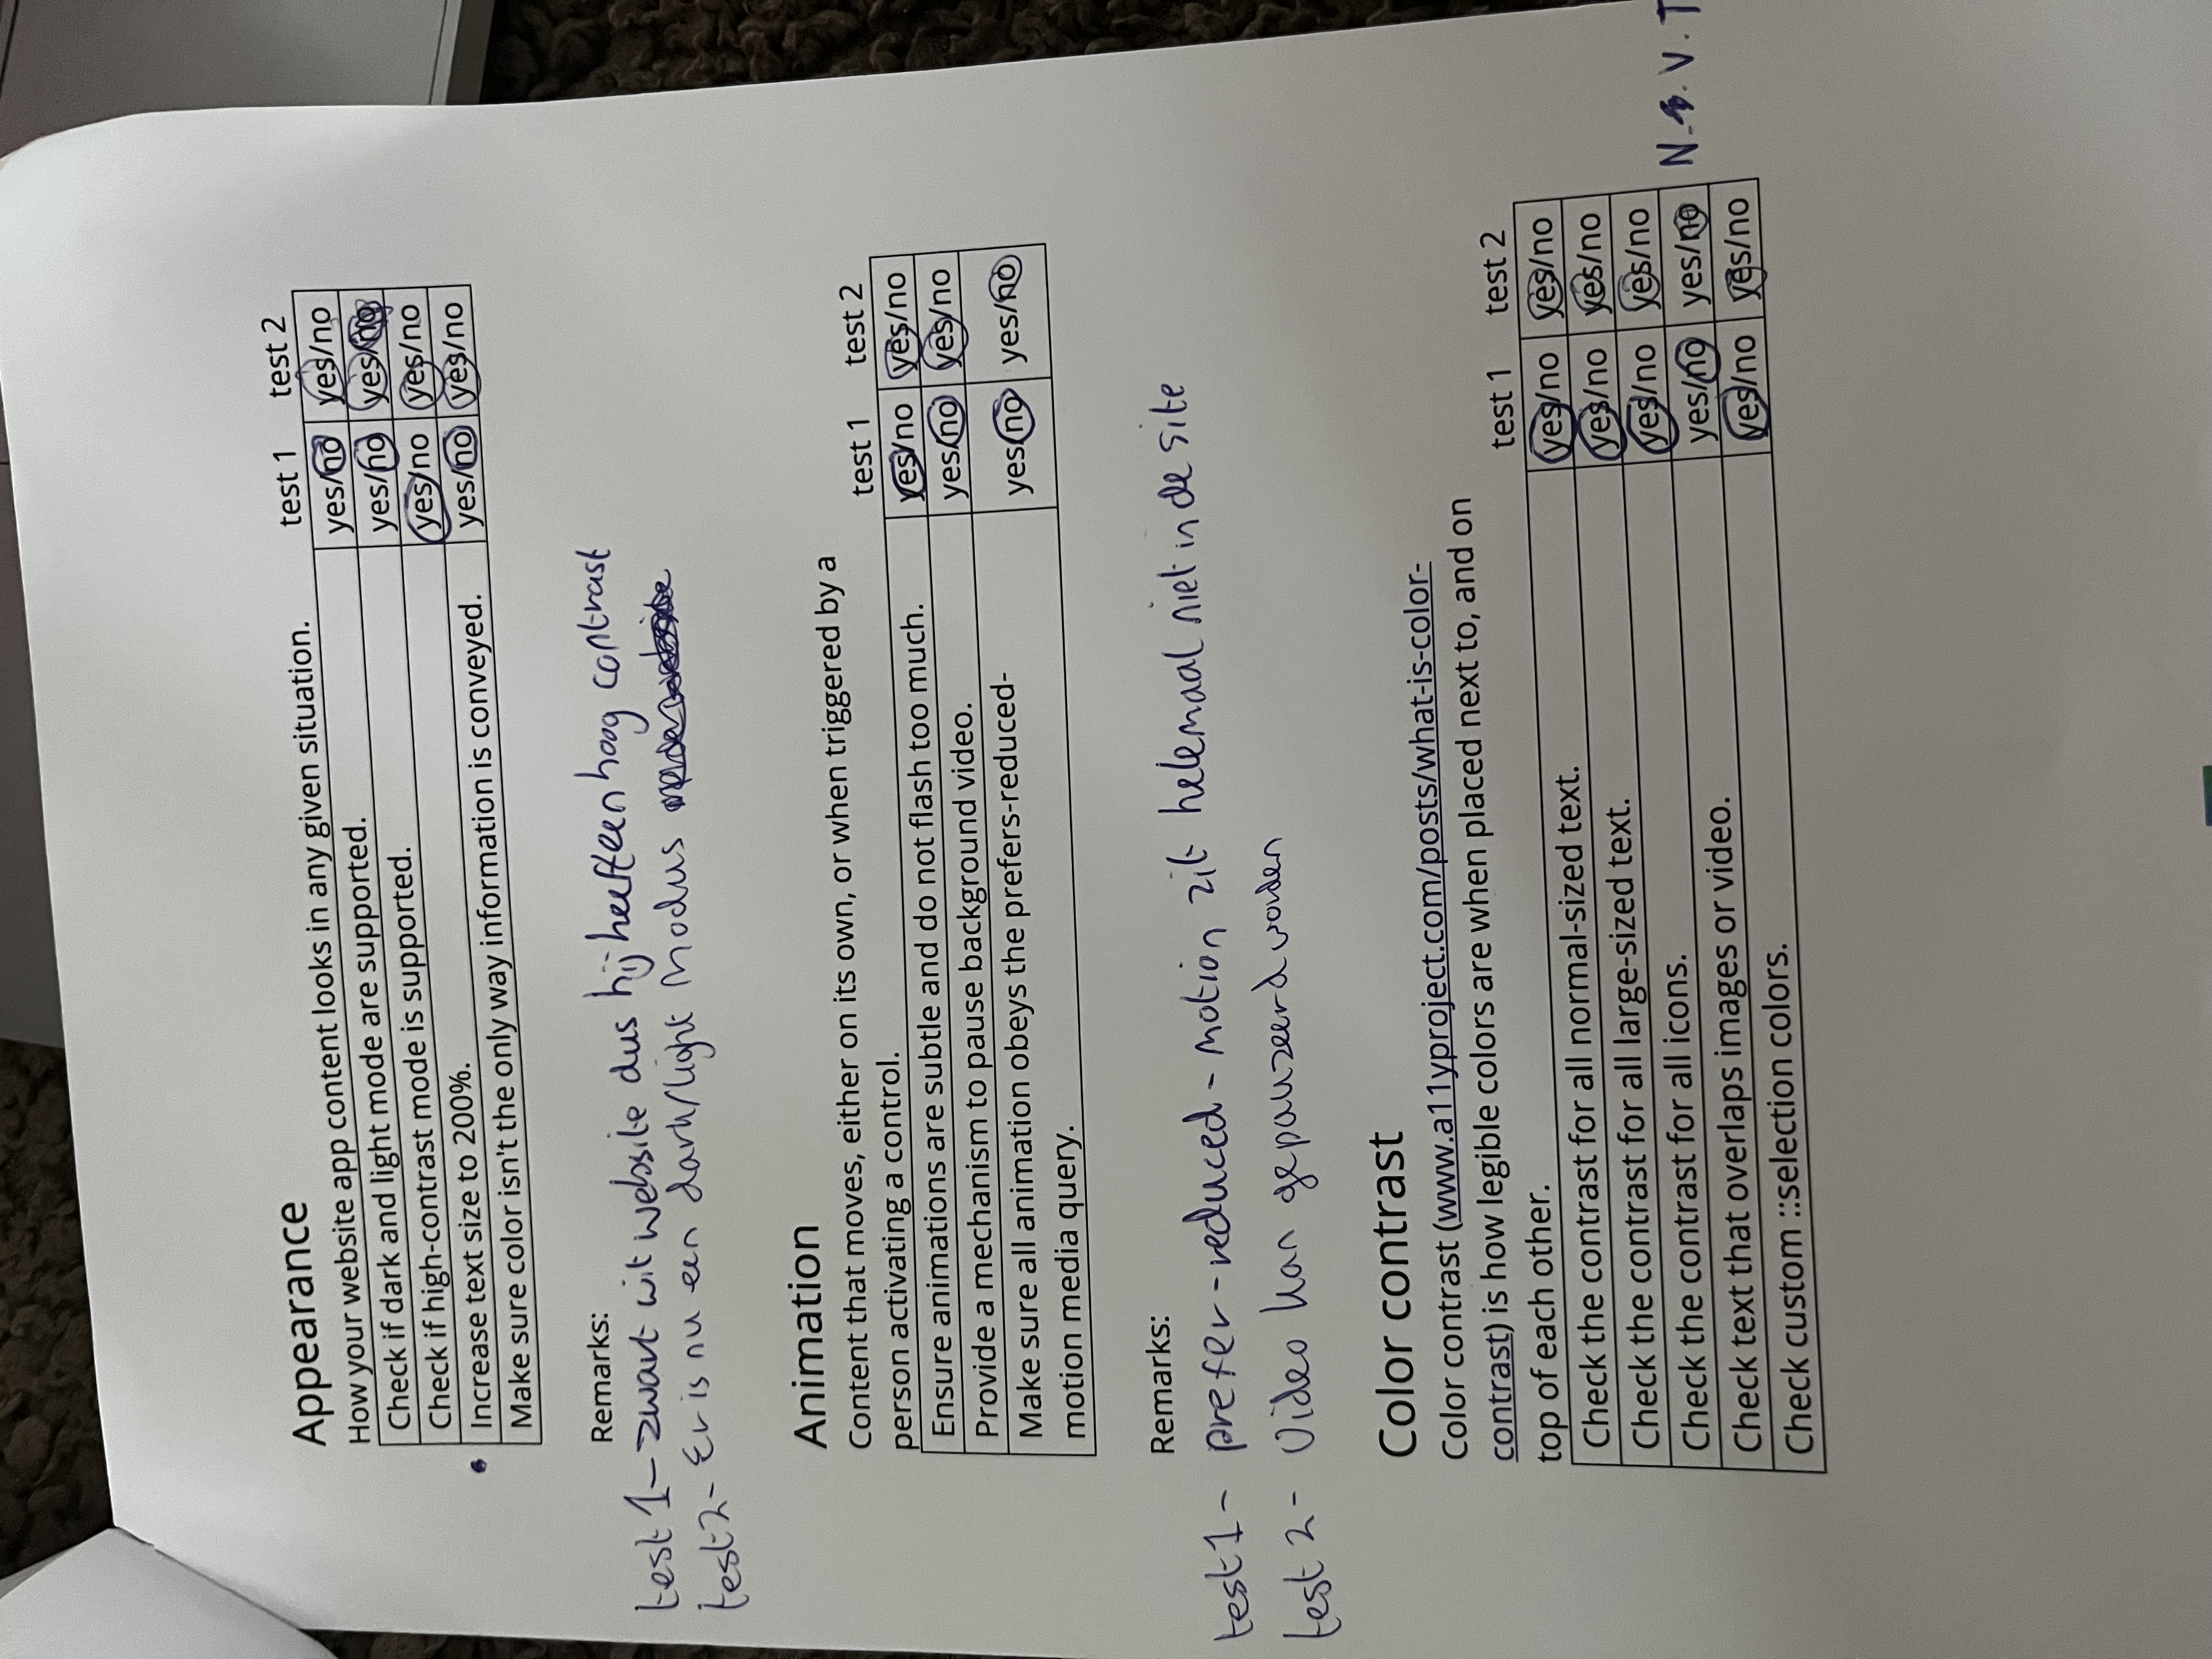 Appearance
test 1 test 2
How your website app content looks in any given situation.
Check if dark and light mode are supported. yes/no yes/no
Check if high-contrast mode is supported. yes/no yes/no
Increase text size to 200%. yes/no yes/no
Make sure color isn't the only way information is conveyed. yes/no yes/no
Remarks:
test 1- zwart wit website dus hij heeft een hoog contrast
test 2- Er is nu een dark/light modus
Animation
Content that moves, either on its own, or when triggered by a
person activating a control. test 1 test 2
Ensure animations are subtle and do not flash too much. yes/no yes/no
Provide a mechanism to pause background video. yes/no yes/no
Make sure all animation obeys the prefers-reduced-
motion media query. yes/no yes/no
Remarks:
test 1- prefer-reduced-motion zit helemaal niet in de site
test 2- Video kan gepauzeerd worden
Color contrast
Color contrast (www.a11yproject.com/posts/what-is-color-
contrast) is how legible colors are when placed next to, and on
top of each other. test 1 test 2
Check the contrast for all normal-sized text. yes/no yes/no
Check the contrast for all large-sized text. yes/no yes/no
Check the contrast for all icons. yes/no yes/no
Check text that overlaps images or video. yes/no yes/no N.V.T
Check custom ::selection colors. yes/no yes/no